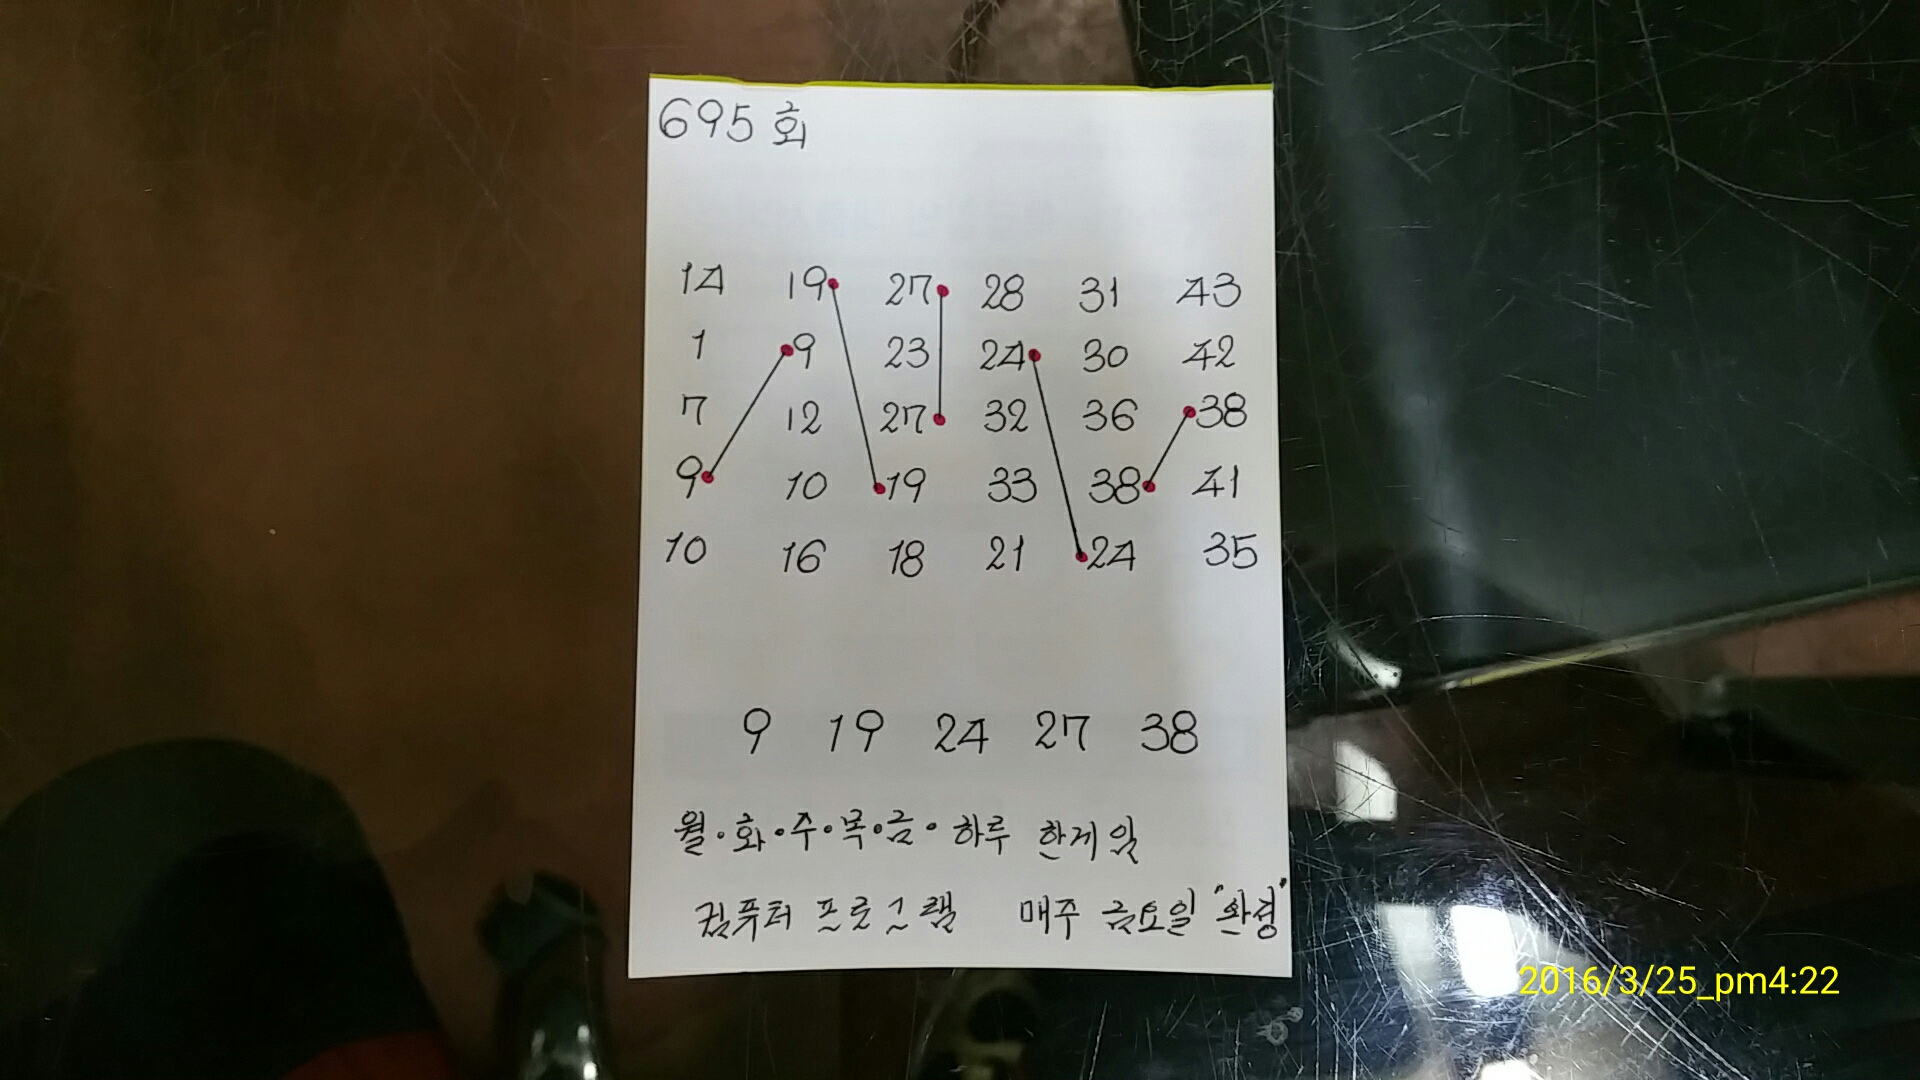 695회
14 19 27 28 31 43
1 9 23 24 30 42
7 12 27 32 36 38
9 10 19 33 38 41
10 16 18 21 24 35
9 19 24 27 38
월·화·수·목·금· 하루 한게임
컴퓨터 프로그램 매주 금요일 "완성"
2016/3/25_pm4:22